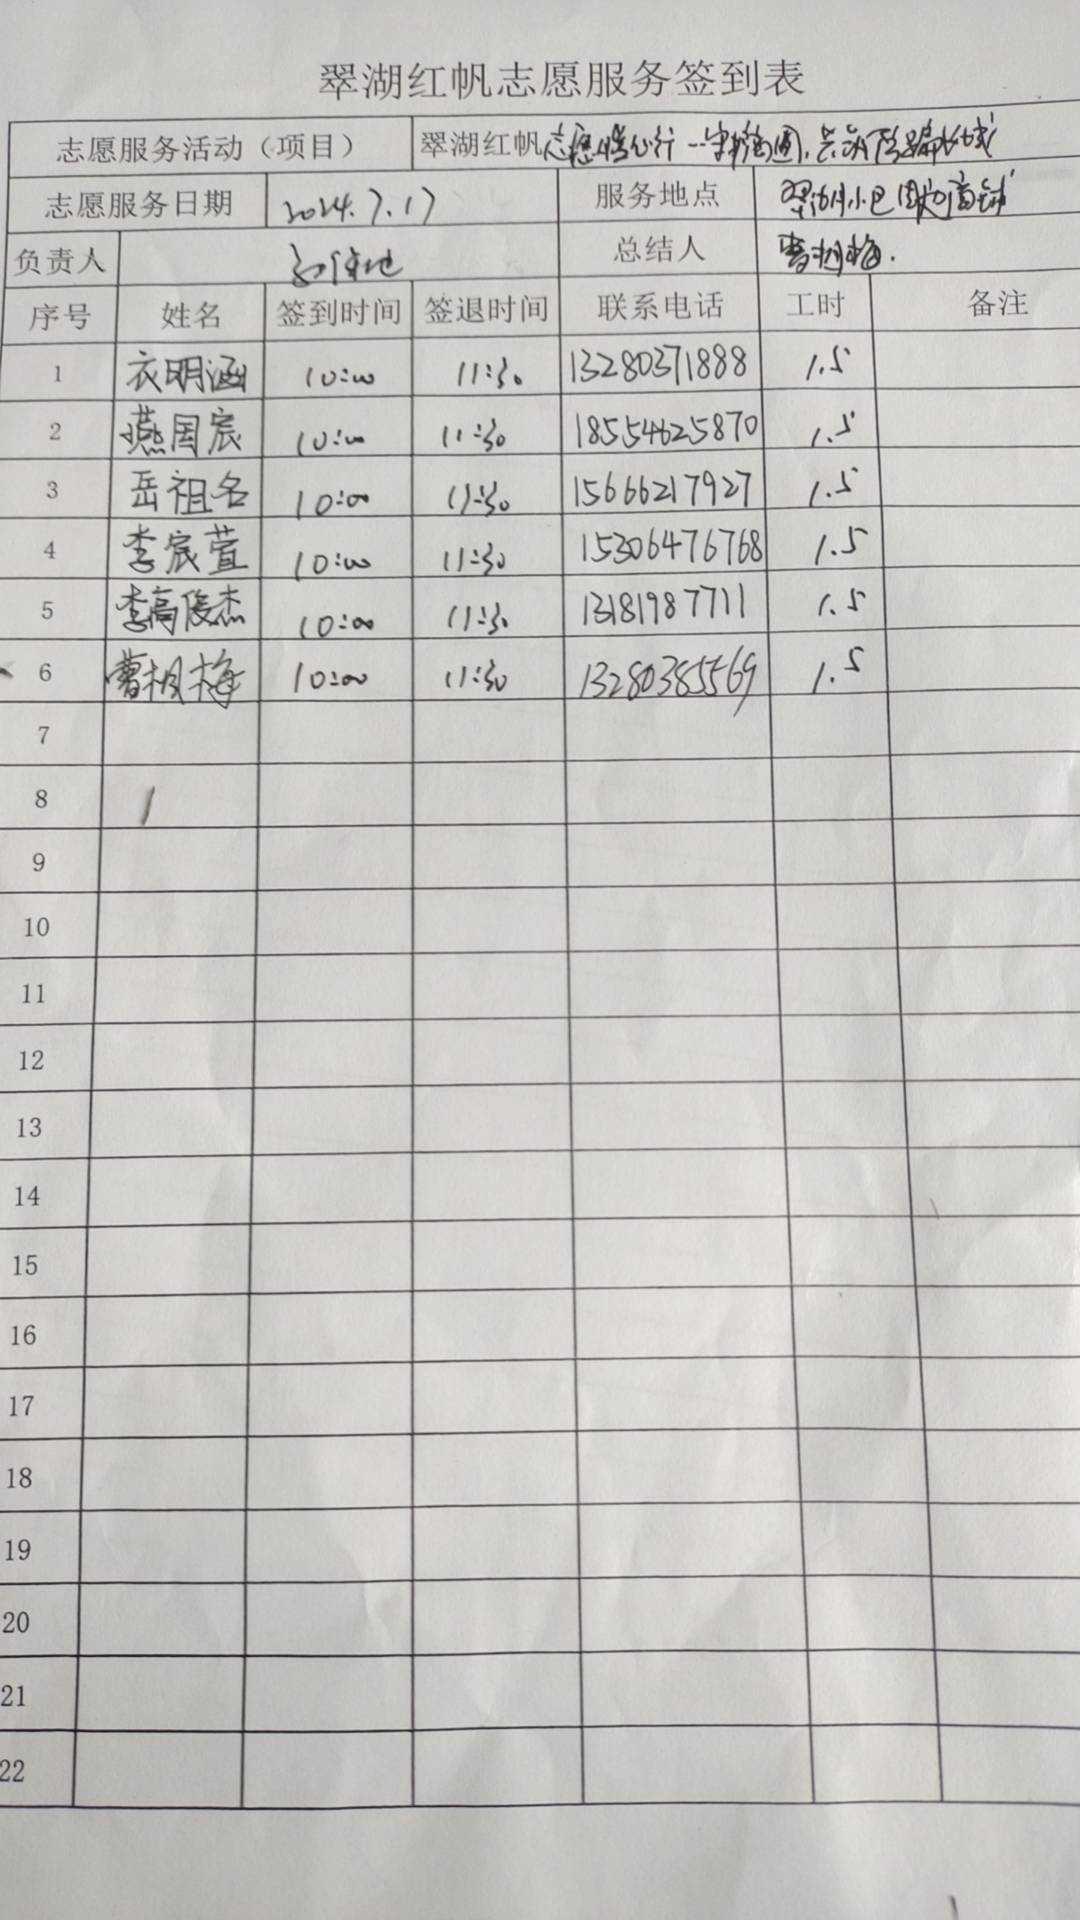 翠湖红帆志愿服务签到表
志愿服务活动（项目） 翠湖红帆志愿 心行 共 防骗长城
志愿服务日期 2024.7.17 服务地点 翠湖小区周边商铺
负责人 总结人 曹相梅.
序号 姓名 签到时间 签退时间 联系电话 工时 备注
1 衣明涵 10:00 11:30 13280371888 1.5
2 燕国宸 10:00 11:30 18554625870 1.5
3 岳祖名 10:00 11:30 15666217927 1.5
4 李宸萱 10:00 11:30 15306476768 1.5
5 李高俊杰 10:00 11:30 13181987711 1.5
6 曹相梅 10:00 11:30 13280385569 1.5
7
8
9
10
11
12
13
14
15
16
17
18
19
20
21
22